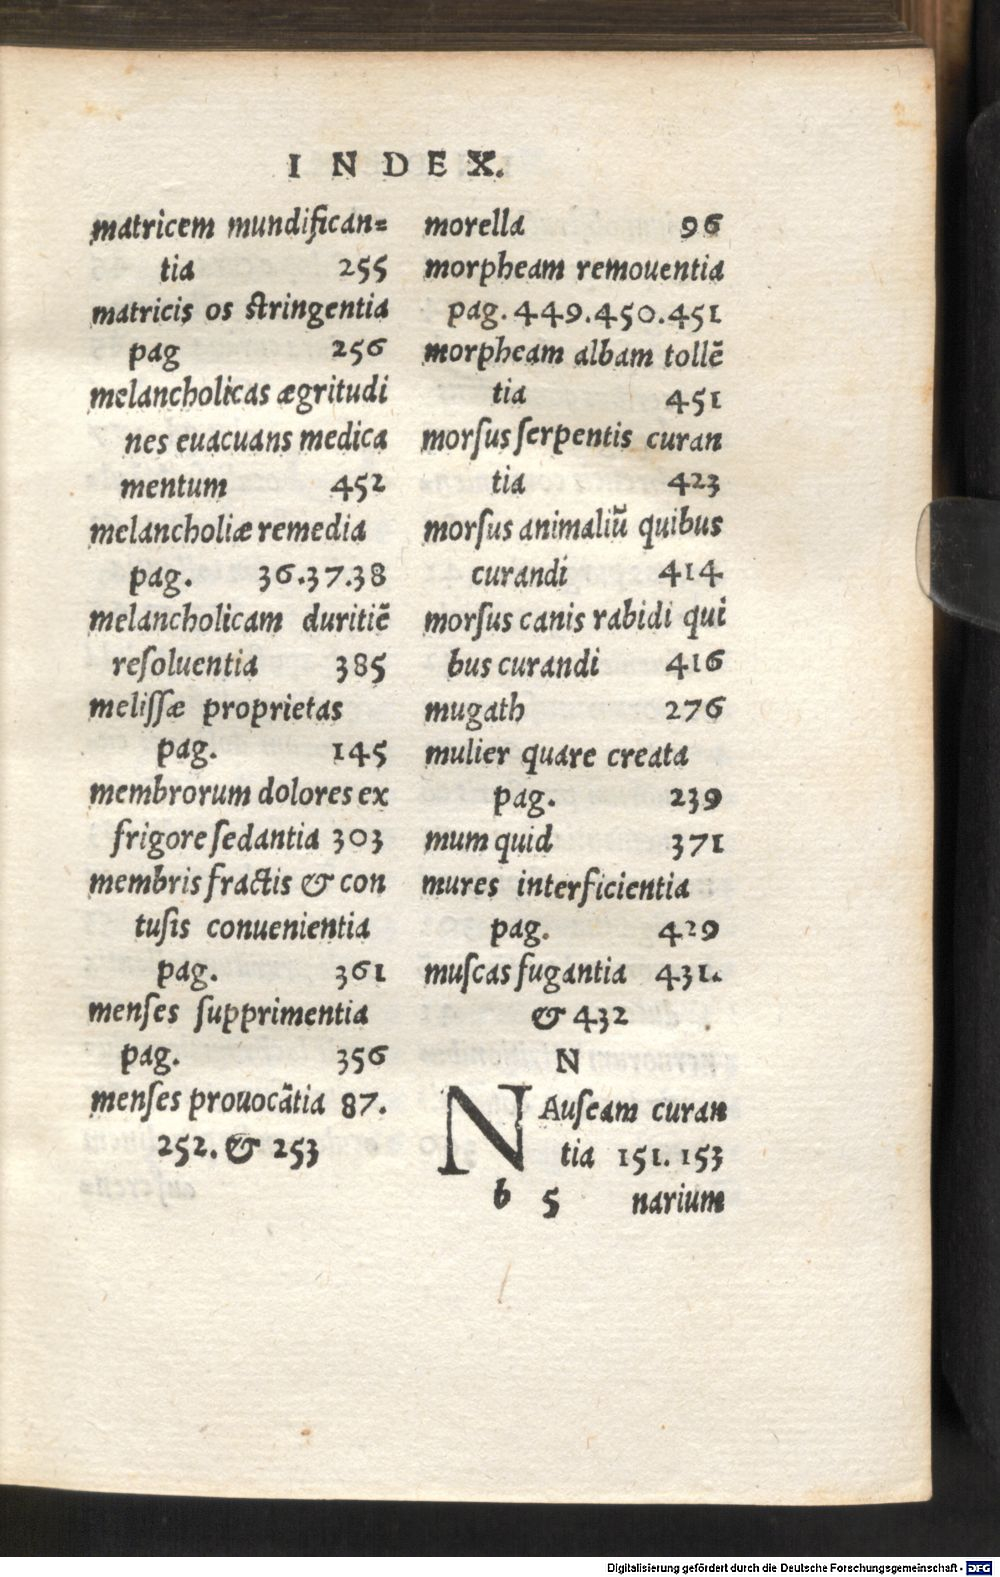 INDEX.
matricem mundifican=
tia 255
matricis os stringentia
pag 256
melancholicas ægritudi
nes euacuans medica
mentum 452
melancholiæ remedia
pag. 36.37.38
melancholicam duritiẽ
reſoluentia 385
meliſſæ proprietas
pag. 145
membrorum dolores ex
frigore ſedantia 303
membris fractis & con
tuſis conuenientia
pag. 361
menſes ſupprimentia
pag. 356
menſes prouocãtia 87.
252. & 253
morella 96
morpheam remouentia
pag. 449.450.451
morpheam albam tollẽ
tia 451
morſus ſerpentis curan
tia 423
morſus animaliũ quibus
curandi 414
morſus canis rabidi qui
bus curandi 416
mugath 276
mulier quare creata
pag. 239
mum quid 371
mures interficientia
pag. 429
muſcas fugantia 431.
& 432
N
NAuſeam curan
tia 151. 153
b 5 narium
Digitalisierung gefördert durch die Deutsche Forschungsgemeinschaft - DFG